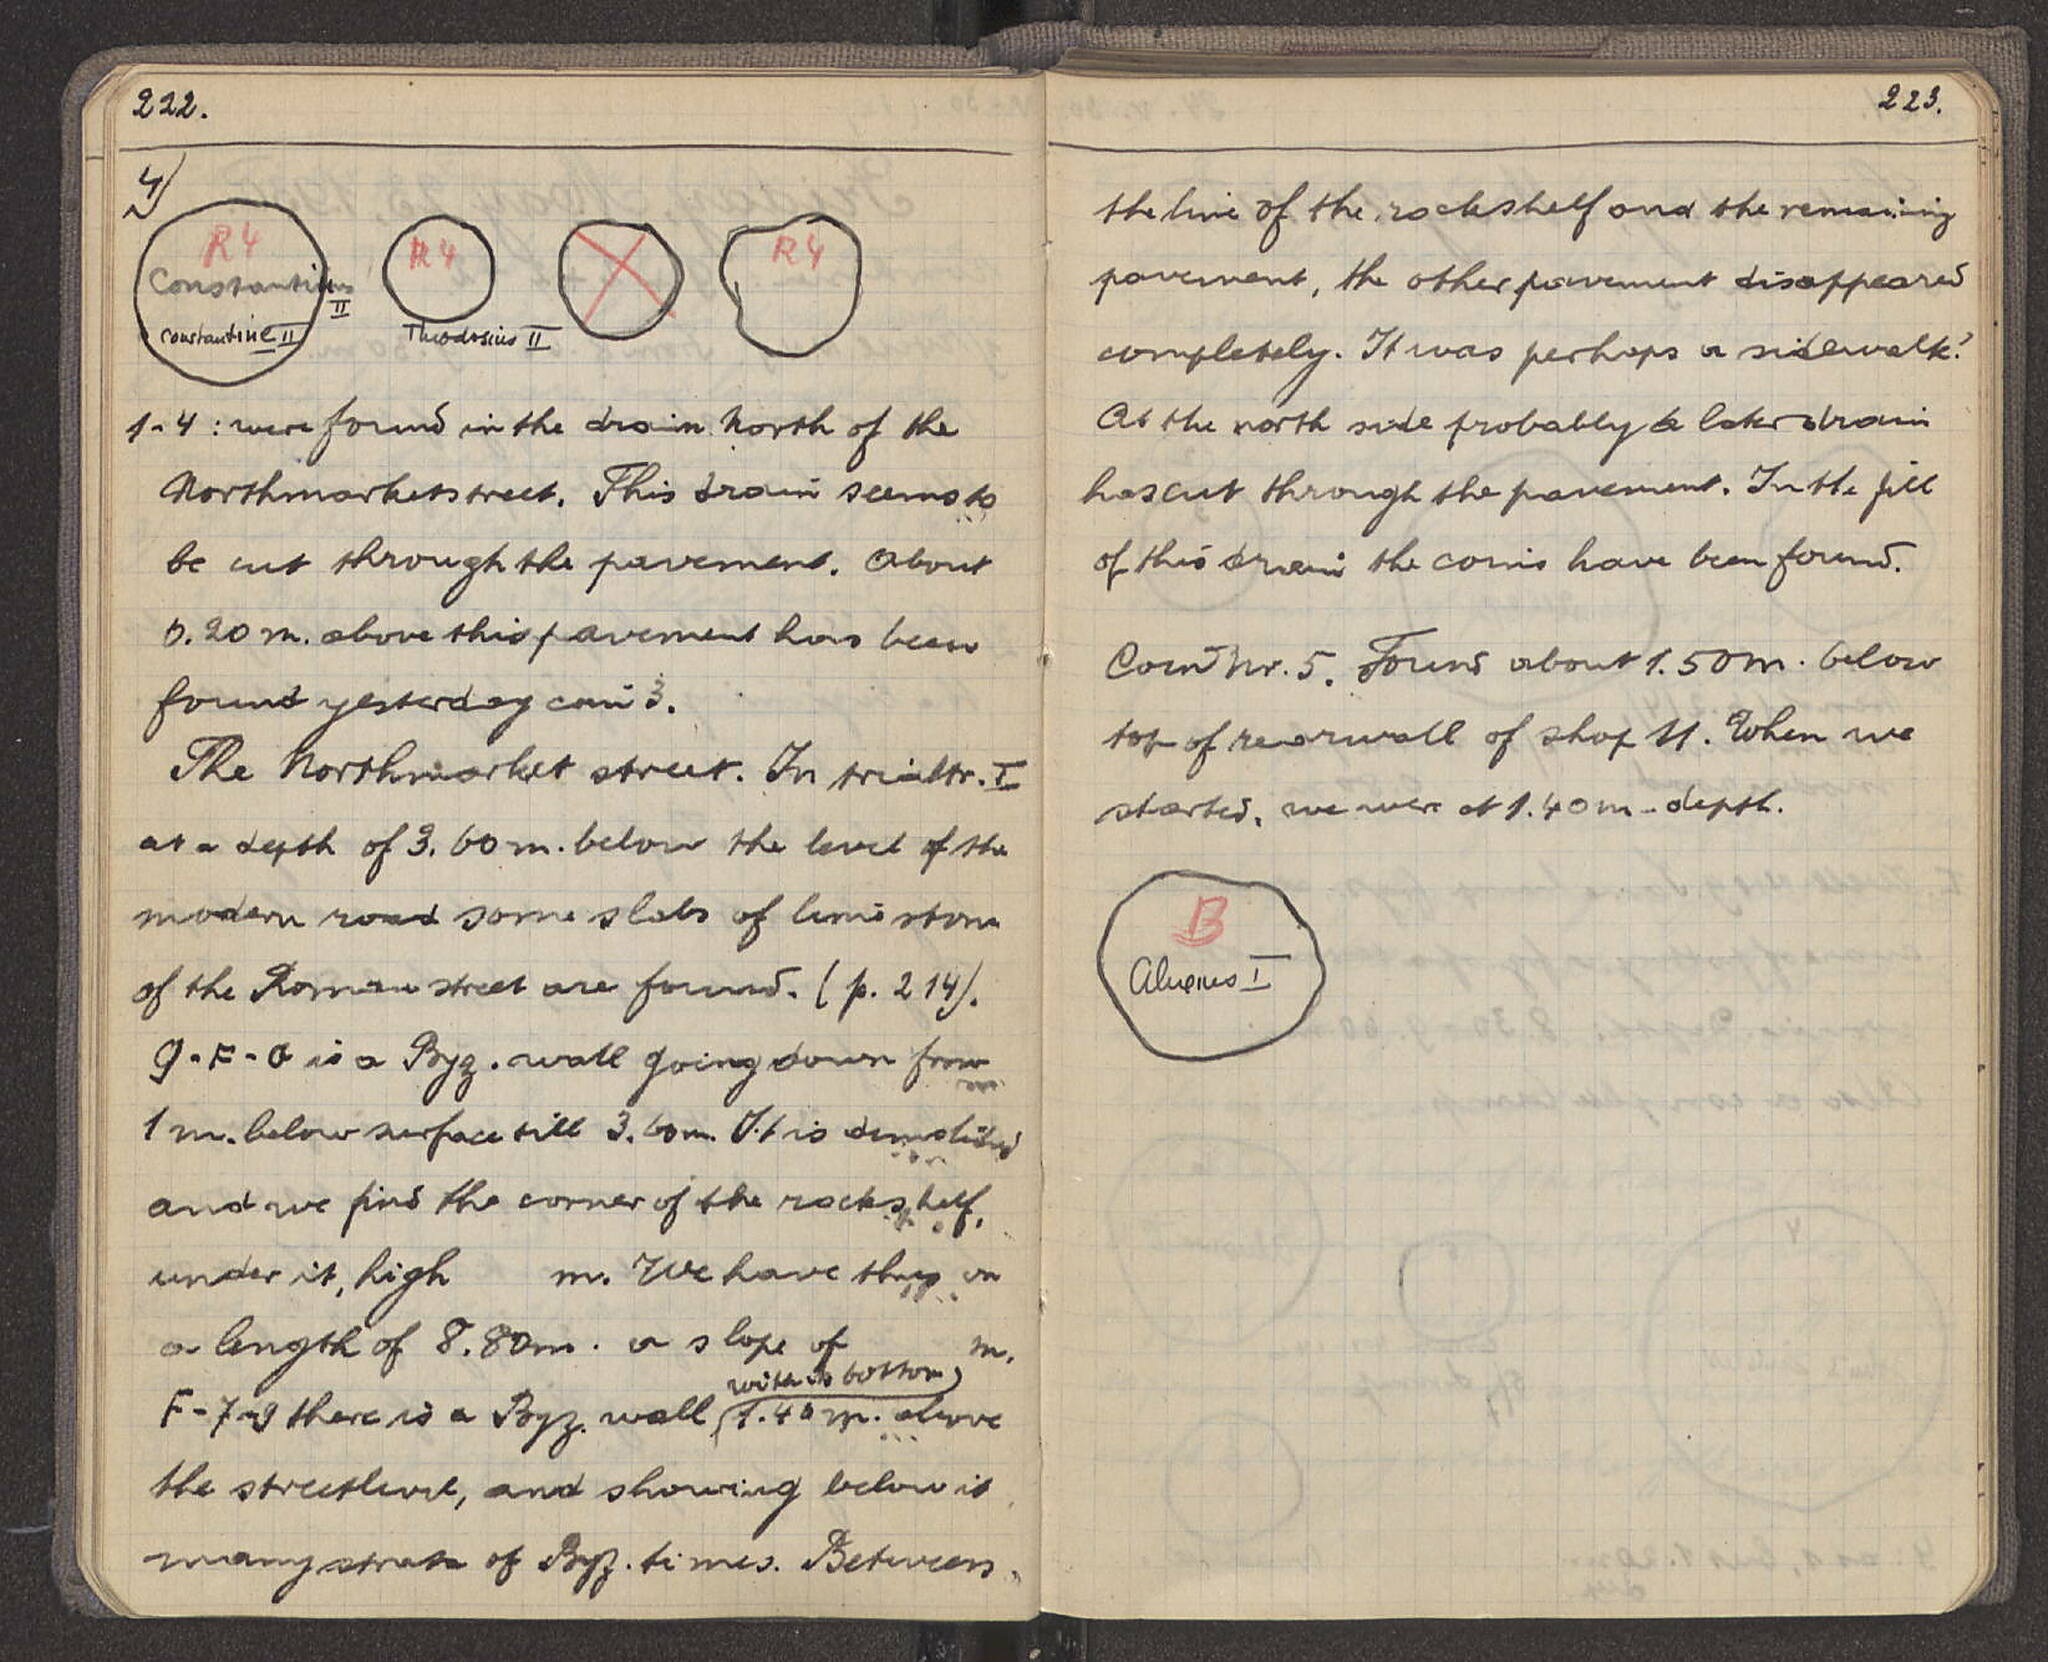 222.
4)
R4
Constantius
II
Constantine II
R4
Theodosius II
R4
1-4: were found in the drain North of the
Northmarketstreet. This drain seems to
be cut through the pavement. About
0.20 m. above this pavement has been
found yesterday coin 3.
The Northmarket street. In trialtr. I
at a depth of 3.60 m. below the level of the
modern road some slabs of limestone
of the Roman street are found. (p. 214).
9-F-G is a Byz. wall going down from
1 m. below surface till 3.60m. It is demolished
and we find the corner of the rockshelf,
under it, high m. We have thus on
a length of 8.80m. a slope of m.
with its bottom
F-7-9 there is a Byz. wall 1.40 m. above
the streetlevel, and showing below it
many strata of Byz. times. Between
223.
the line of the rockshelf and the remaining
pavement, the other pavement disappeared
completely. It was perhaps a sidewalk?
At the north side probably a later drain
has cut through the pavement. In the fill
of this drain the coins have been found.
Coin Nr. 5. Found about 1.50m. below
top of rearwall of shop 11. When we
started, we were at 1.40m-depth.
B
Alexius I